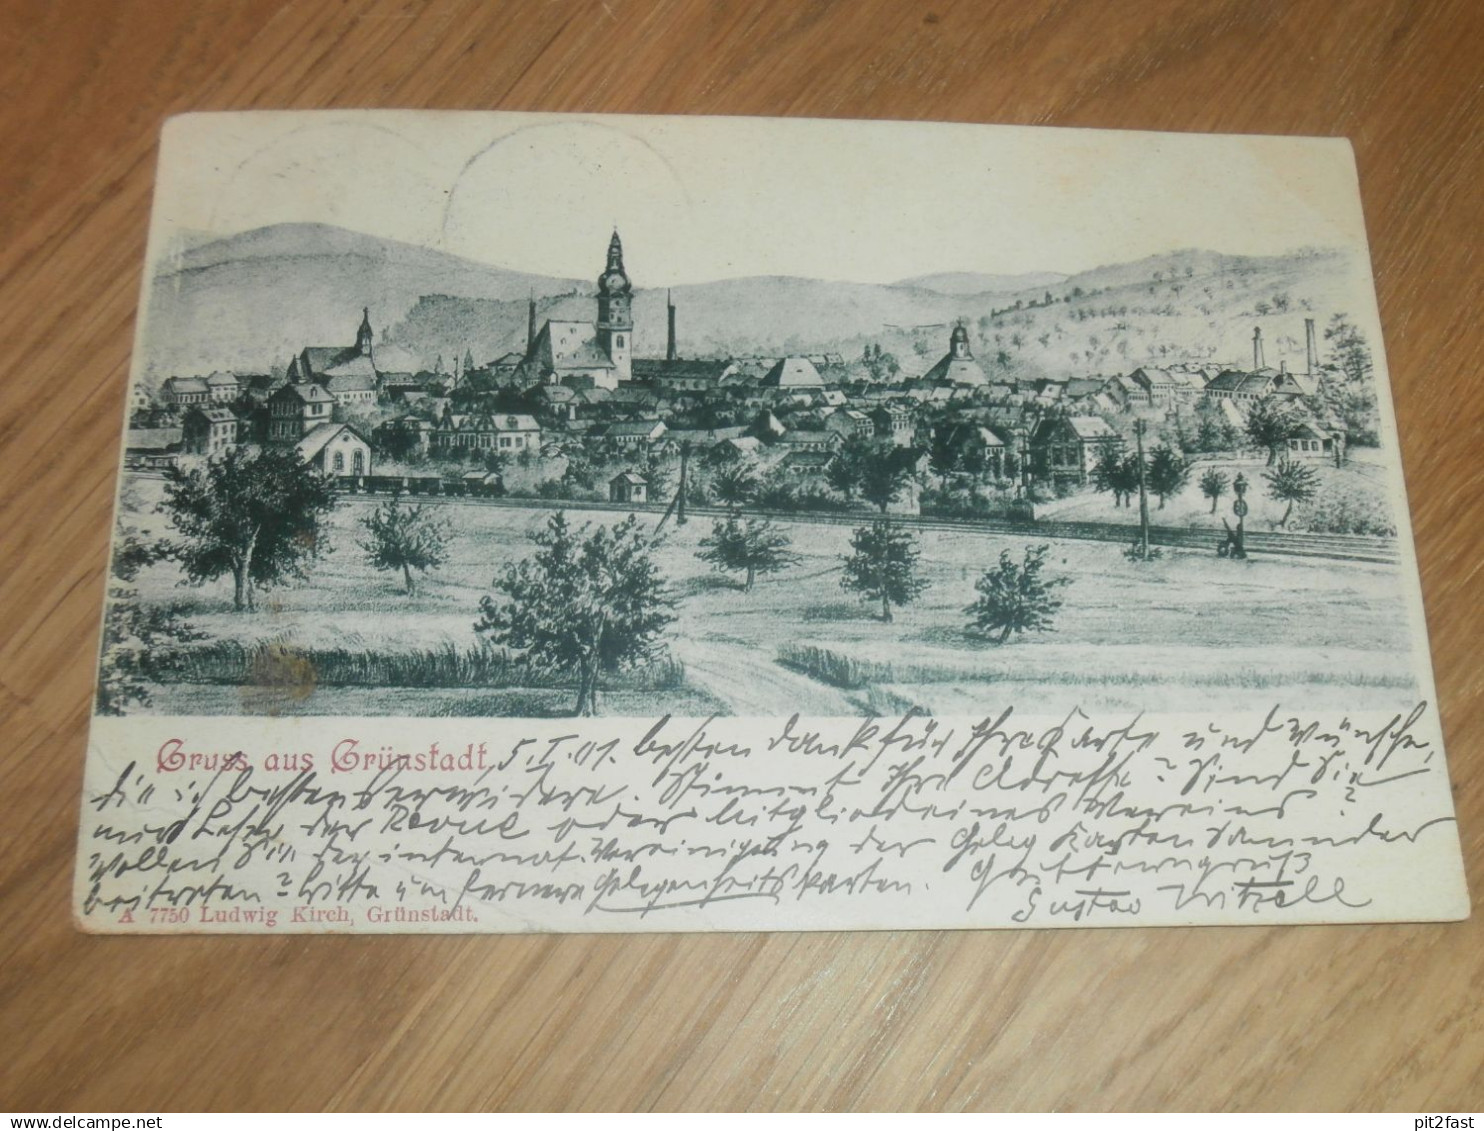 Gruss aus Grünstadt, 5.I.01. besten Dank für Ihre Karte und Wünsche,
die ich bestens erwidere. Stimmt Ihre Adresse? Sind Sie
nur Leser der Revue oder Mitglied eines Vereins?
Wollen Sie der internat. Vereinigung der Geleg Karten Sammler
beitreten? Bitte um fernere Gelegenheitskarten. Gruß
Gustav
A 7750 Ludwig Kirch, Grünstadt.
pit2fast